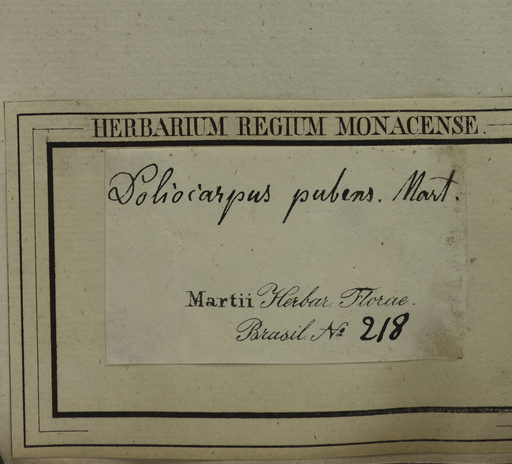 HERBARIUM REGIUM MONACENSE.
Doliocarpus pubens. Mart.
Martii Herbar. Florae.
Brasil. No 218